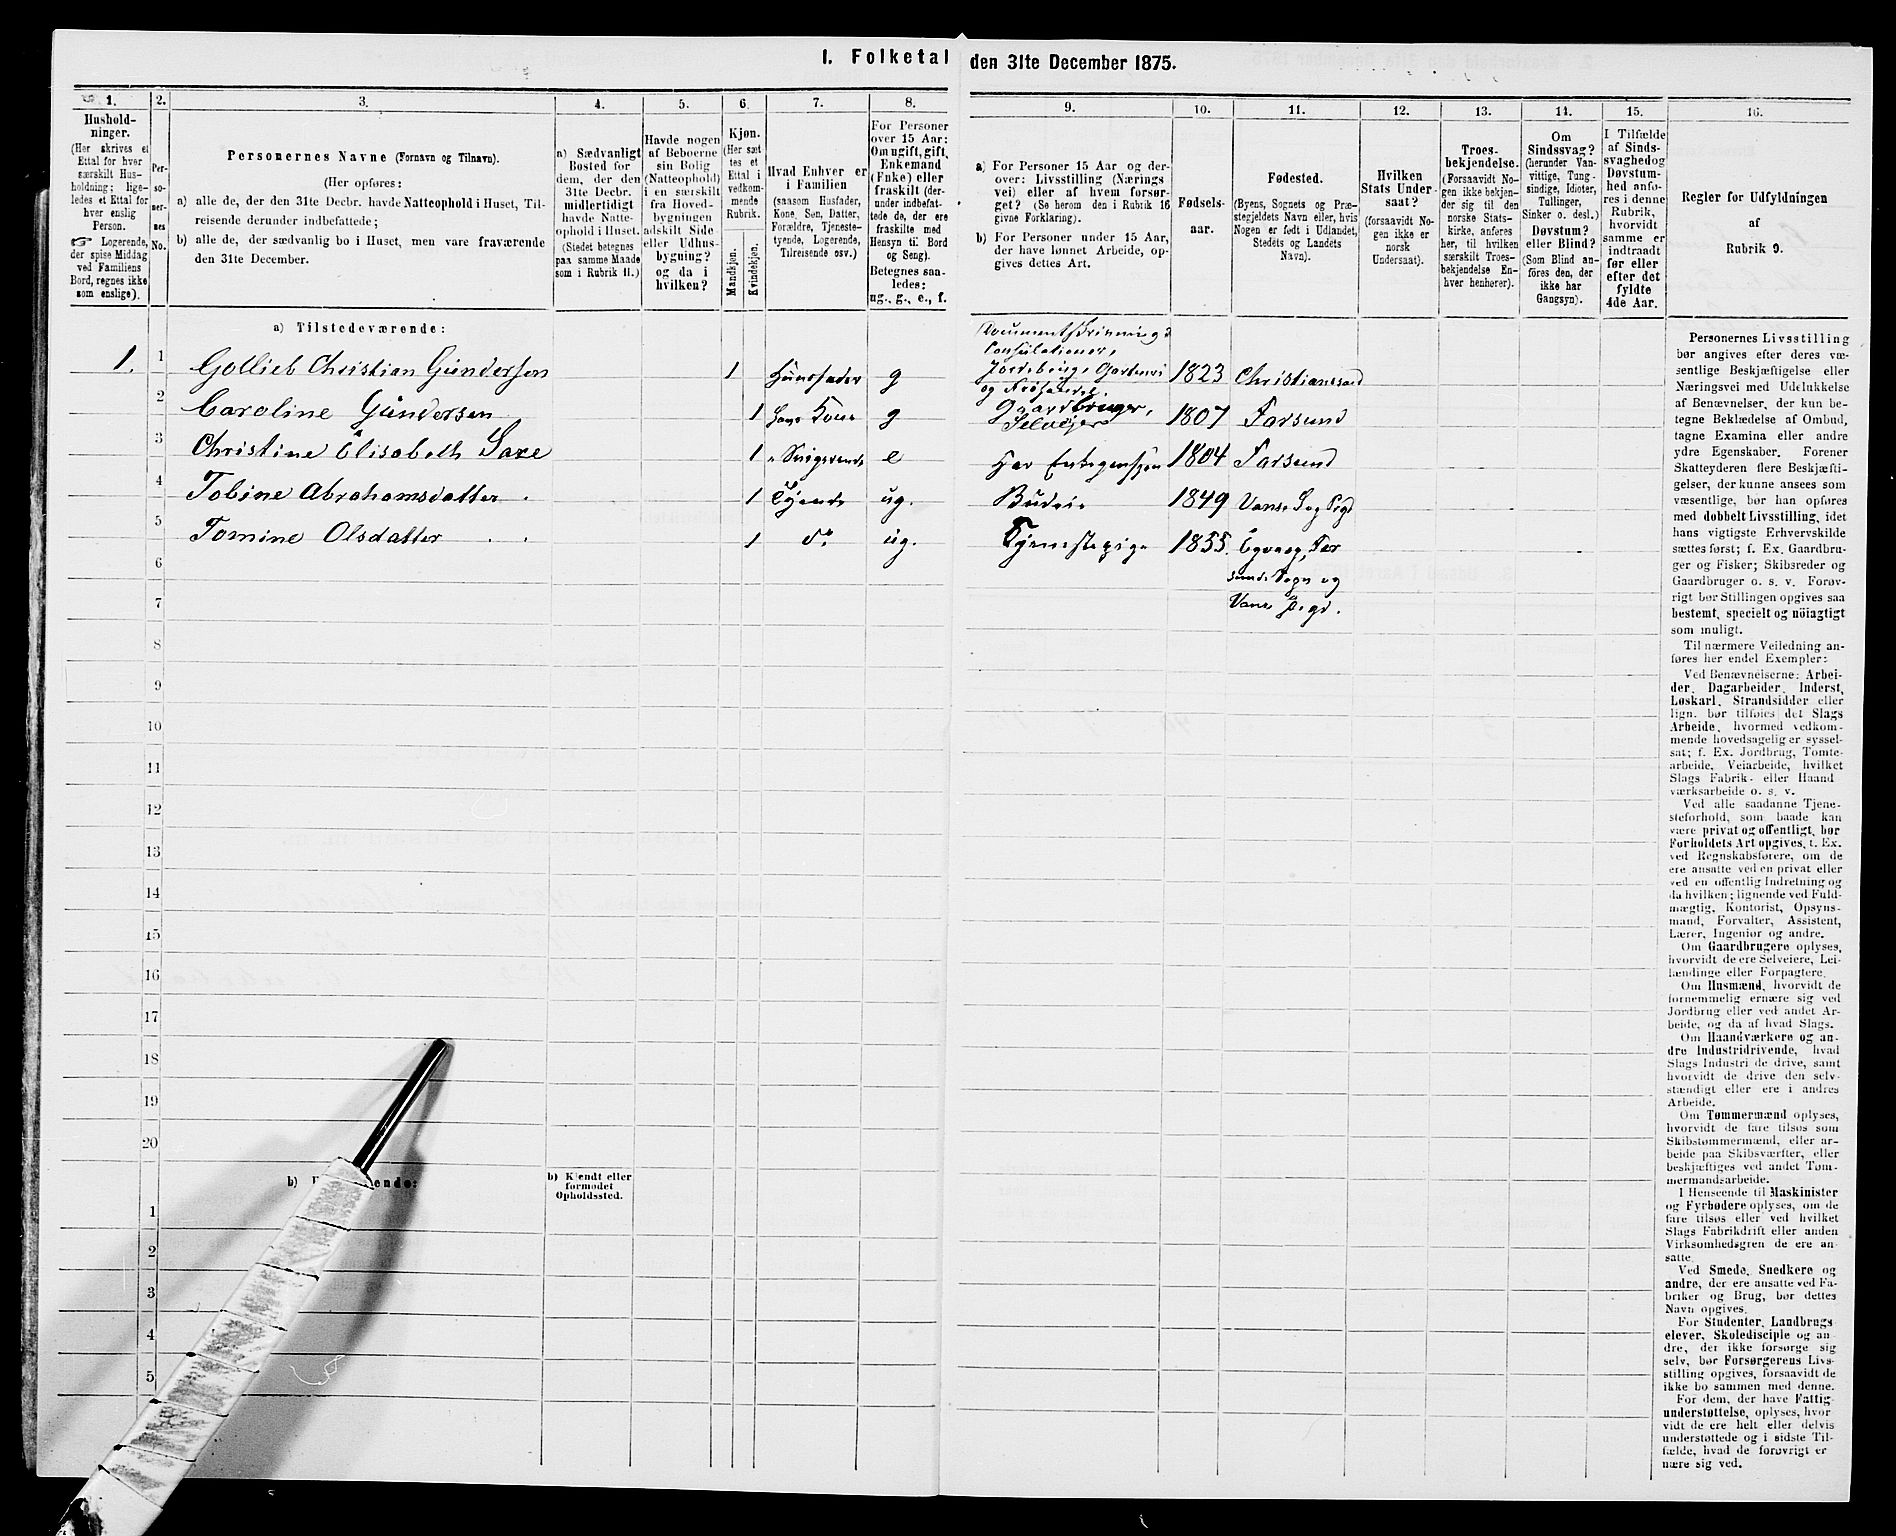 I. Folketal den 31te December 1875.
1.
Hushold-
ninger.
(Her skrives et
Ettal for hver
særskilt Hus-
holdning; lige-
ledes et Ettal for
hver enslig
Person.
☞ Logerende,
der spise Middag
ved Familiens
Bord, regnes ikke
som enslige).
2.
Per-
so-
ner-
nes
No.
3.
Personernes Navne (Fornavn og Tilnavn).
(Her opføres:
a) alle de, der den 31te Decbr. havde Natteophold i Huset, Til-
reisende derunder indbefattede;
b) alle de, der sædvanlig bo i Huset, men vare fraværende
den 31te December.
4.
a) Sædvanligt
Bosted for
dem, der den
31te Decbr.
midlertidigt
havde Natte-
ophold i Huset.
(Stedet betegnes
paa samme Maade
som i Rubrik 11.)
5.
Havde nogen
af Beboerne
sin Bolig
(Natteophold)
i en særskilt
fra Hoved-
bygningen
adskilt Side-
eller Udhus-
bygning?
og da i
hvilken?
6.
Kjøn.
(Her sæt-
tes et
Ettal i
vedkom-
mende
Rubrik.
Mandkjøn.
Kvindekjøn.
7.
Hvad Enhver er
i Familien
(saasom Husfader,
Kone, Søn, Datter,
Forældre, Tjeneste-
tyende, Logerende,
Tilreisende osv.)
8.
For Personer
over 15 Aar:
Om ugift, gift,
Enkemand
(Enke) eller
fraskilt (der-
under indbefat-
tede de, der ere
fraskilte med
Hensyn til Bord
og Seng).
Betegnes saa-
ledes:
ug., g., e., f.
9.
a) For Personer 15 Aar og der-
over: Livsstilling (Nærings-
vei) eller af hvem forsør-
get? (Se herom den i Rubrik 16
givne Forklaring).
b) For Personer under 15 Aar,
der have lønnet Arbeide, op-
gives dettes Art.
10.
Fødsels-
aar.
11.
Fødested.
(Byens, Sognets og Præ-
stegjeldets Navn eller, hvis
Nogen er født i Udlandet,
Stedets og Landets
Navn).
12.
Hvilken
Stats Under-
saat?
(forsaavidt No-
gen ikke er
norsk
Undersaat).
13.
Troes-
bekjendelse.
(Forsaavidt No-
gen ikke bekjen-
der sig til den
norske Stats-
kirke, anføres
her, til hvilken
særskilt Troes-
bekjendelse En-
hver henhører).
14.
Om
Sindssvag?
(herunder Van-
vittige, Tung-
sindige, Idioter,
Tullinger,
Sinker o. desl.)
Døvstum?
eller Blind?
(Som Blind an-
føres den, der
ikke har
Gangsyn).
15.
I Tilfælde
af Sinds-
svaghed og
Døvstum-
hed anfø-
res i denne
Rubrik,
hvorvidt
samme er
indtraadt
før eller
efter det
fyldte
4de Aar.
16.
Regler for Udfyldningen
af
Rubrik 9.
a) Tilstedeværende:
1. 1 Gottlieb Christian Gundersen 1 Huusfader g Documentskrivning og Consulationer, Jordebrug, Gartneri og Frøhandel. Gaardbruger, Selveier 1823 Christianssand
2 Caroline Gundersen 1 hans Kone g 1807 Farsund
3 Christine Elisabeth Saxe 1 e 1804 Farsund
4 Tobine Abrahamsdatter 1 Tyende ug. Budeie 1849 Vanse Sog Prgd
5 Tomine Olsdatter 1 do ug. Tjenestepige 1855. Egvaag, Far
sunds Sogn og
Vanse Prgd.
6
7
8
9
10
11
12
13
14
15
16
17
18
19
20
b)
ende:
b) Kjendt eller
formodet
Opholdssted.
1
2
3
4
5
Personernes Livsstilling
bør angives efter deres væ-
sentlige Beskjæftigelse eller
Næringsvei med Udelukkelse
af Benævnelser, der kun be-
tegne Beklædelse af Ombud,
tagne Examina eller andre
ydre Egenskaber. Forener
Skatteyderen flere Beskjæfti-
gelser, der kunne ansees som
væsentlige, bør han opføres
med dobbelt Livsstilling, idet
hans vigtigste Erhvervskilde
sættes først; f. Ex. Gaardbru-
ger og Fisker; Skibsreder og
Gaardbruger o. s. v. Forøv-
rigt bør Stillingen opgives saa
bestemt, specielt og nöiagtigt
som muligt.
Til nærmere Veiledning an-
føres her endel Exempler:
Ved Benævnelserne: Arbei-
der, Dagarbeider, Inderst,
Løskarl, Strandsidder eller
lign. bør tilføies det Slags
Arbeide, hvormed vedkom-
mende hovedsagelig er syssel-
sat; f. Ex. Jordbrug, Tomte-
arbeide, Veiarbeide, hvilket
Slags Fabrik- eller Haand-
værksarbeide o. s. v.
Ved alle saadanne Tjene-
steforhold, som baade kan
være privat og offentligt, bør
Forholdets Art opgives, t. Ex.
ved Regnskabsførere, om de
ere ansatte ved en privat eller
ved en offentlig Indretning og
da hvilken; lignende ved Fuld-
mægtig, Kontorist, Opsyns-
mand, Forvalter, Assistent,
Lærer, Ingeniør og andre.
Om Gaardbrugere oplyses,
hvorvidt de ere Selveiere, Lei-
lændinge eller Forpagtere.
Om Husmænd, hvorvidt de
fornemmelig ernære sig ved
Jordbrug eller ved andet Ar-
beide, og da af hvad Slags.
Om Haandværkere og an-
dre Industridrivende, hvad
Slags Industri de drive, samt
hvorvidt de drive den selv-
stændigt eller ere i andres
Arbeide.
Om Tømmermænd oplyses,
hvorvidt de fare tilsøs som
Skibstømmermænd, eller ar-
beide paa Skibsværfter, eller
beskjæftiges ved andet Tøm-
mermandsarbeide.
I Henseende til Maskinister
og Fyrbødere oplyses, om de
fare tilsøs eller ved hvilket
Slags Fabrikdrift eller anden
Virksomhedsgren de ere an-
satte.
Ved Smede, Snedkere og
andre, der ere ansatte ved Fa-
briker og Brug, bør dettes
Navn opgives.
For Studenter, Landbrugs-
elever, Skoledisciple og an-
dre, der ikke forsørge sig
selv, bør Forsørgerens Livs-
stilling opgives, forsaavidt de
ikke bo sammen med denne.
For dem, der have Fattig-
understøttelse, oplyses, hvor-
vidt de ere helt eller delvis
understøttede og i sidste Til-
fælde, hvad de forøvrigt er-
nære sig ved.